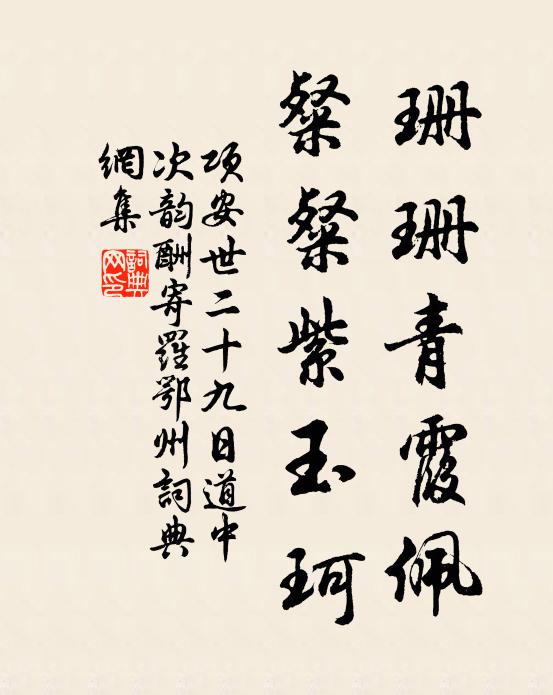 珊珊青霞佩
粲粲紫玉珂
项安世二十九日道中
次韵酬寄羅鄂州詞典
網集
詞典
网印